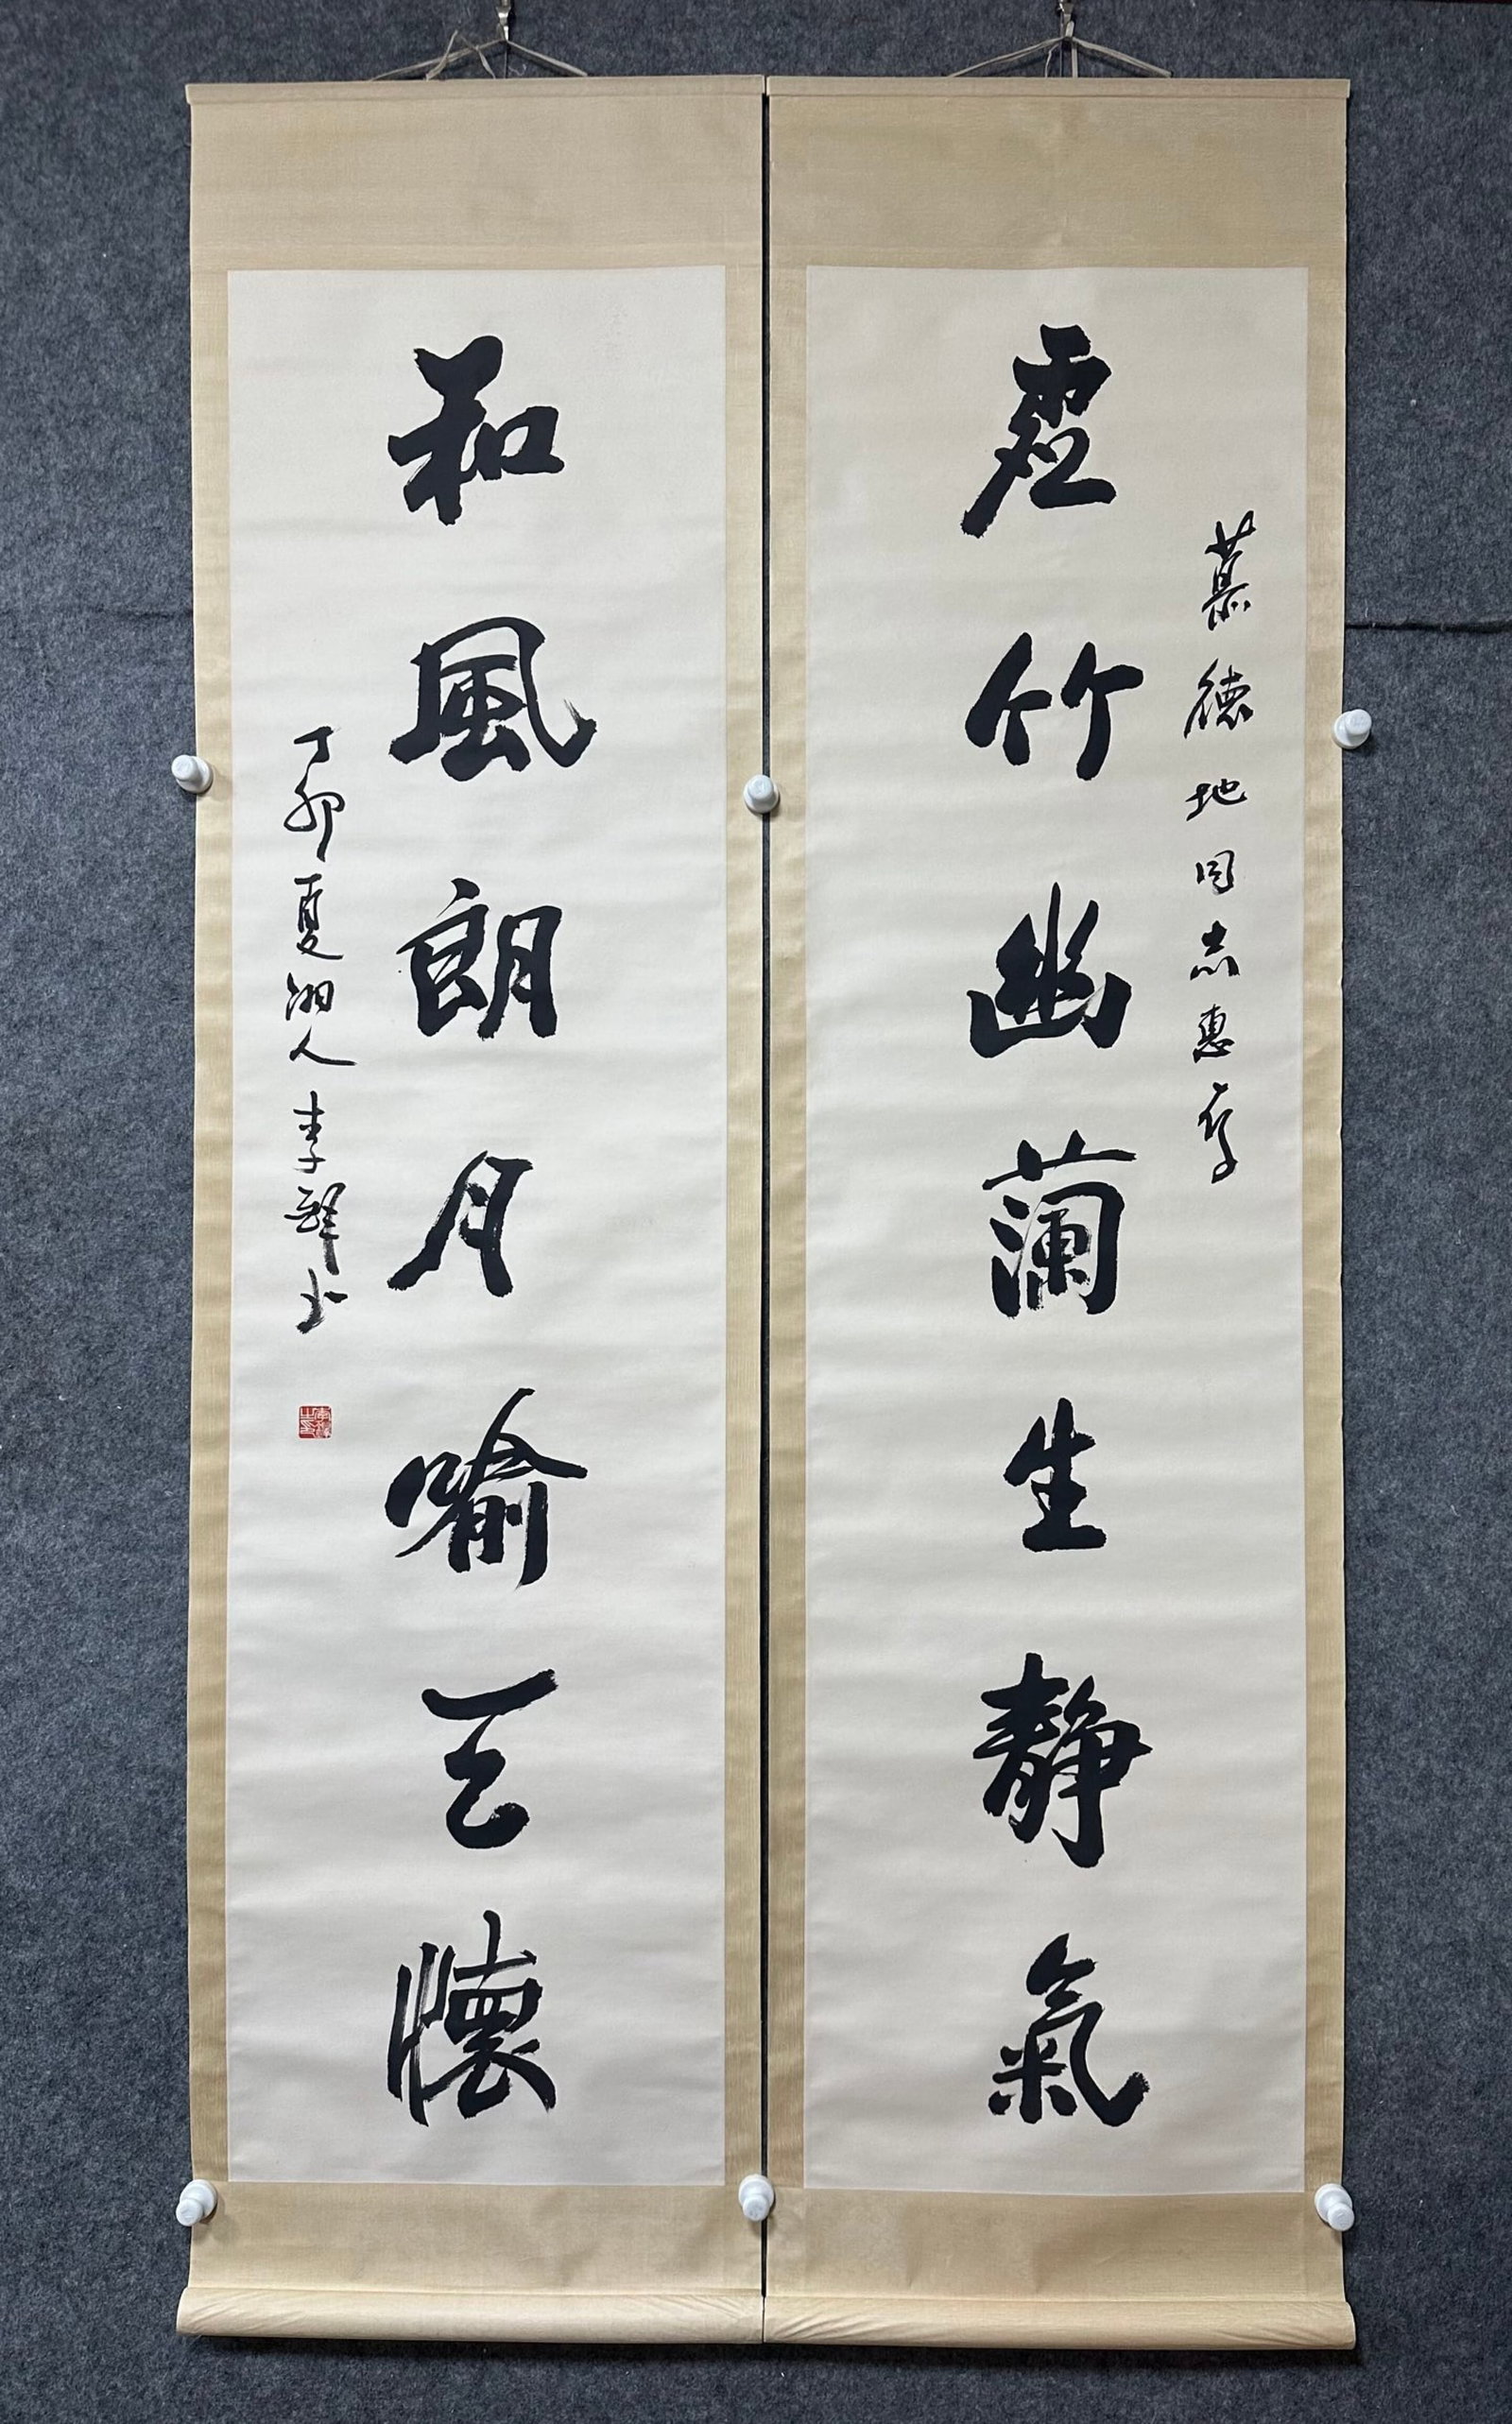 慕德地同志惠存
虚竹幽蘭生静氣
和風朗月喻天懷
丁卯夏湘人李鐸书